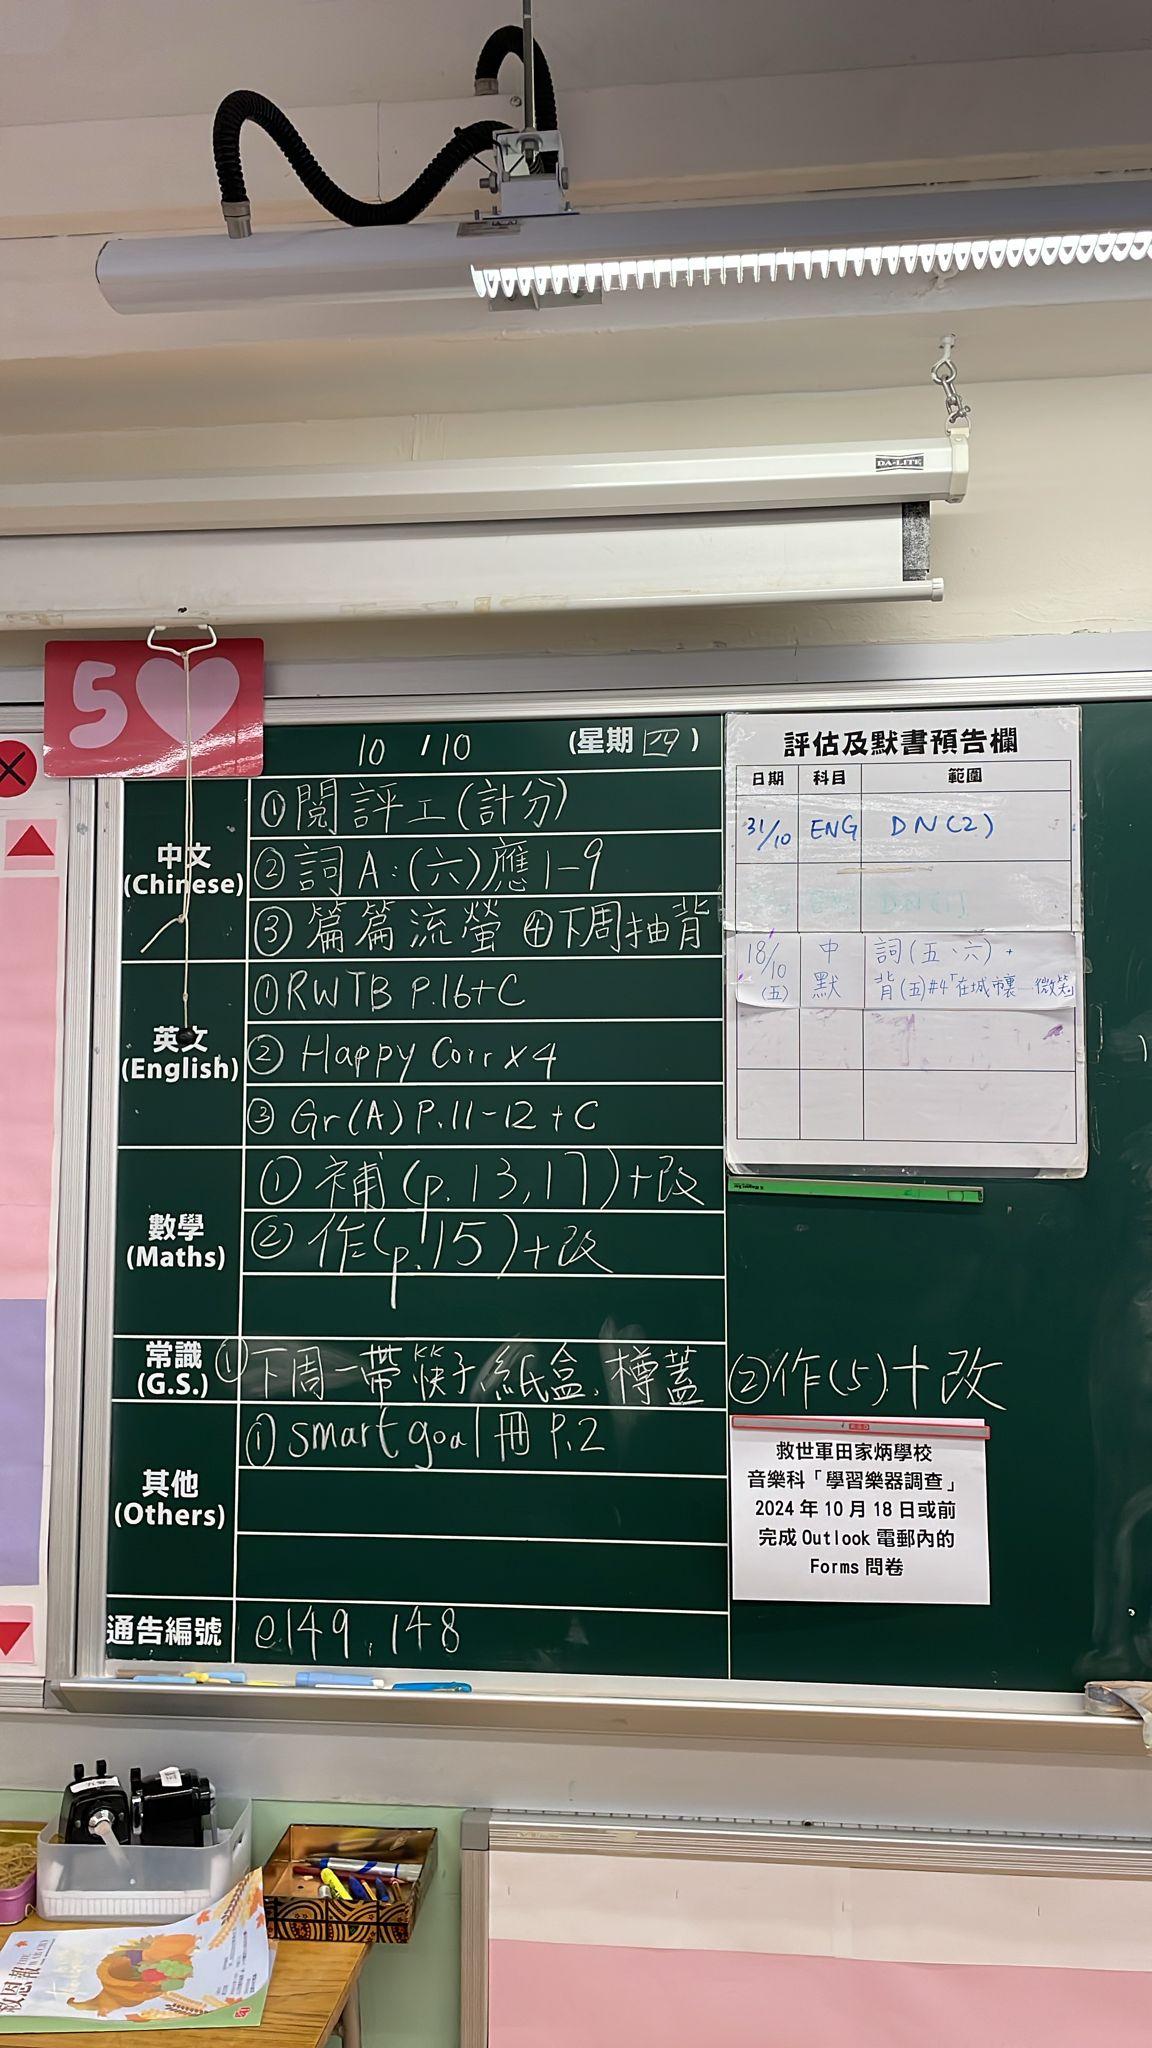 DA-LITE
5
10 / 10 (星期 四 )
中文
(Chinese)
①閱評工(計分)
②詞A:(六)應1-9
③篇篇流螢 ④下周抽背
英文
(English)
①RWTB P.16+C
② Happy Corr x 4
③ Gr(A) P.11-12 + C
數學
(Maths)
① 補(p.13,17)+改
② 作(p.15)+改
常識
(G.S.)
①下周一帶筷子,紙盒,樽蓋 ②作(5)+改
其他
(Others)
① smart goal冊 P.2
通告編號
e149, 148
評估及默書預告欄
日期 科目 範圍
31/10 ENG DN(2)
DN(1)
18/10 (五) 中默 詞(五、六)+
背(五)#4「在城市裏 微笑」
救世軍田家炳學校
音樂科「學習樂器調查」
2024 年 10 月 18 日或前
完成 Outlook 電郵內的
Forms 問卷